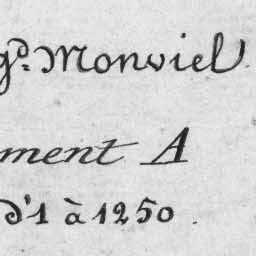 gd. Monviel
ment A
d'1 à 1250.